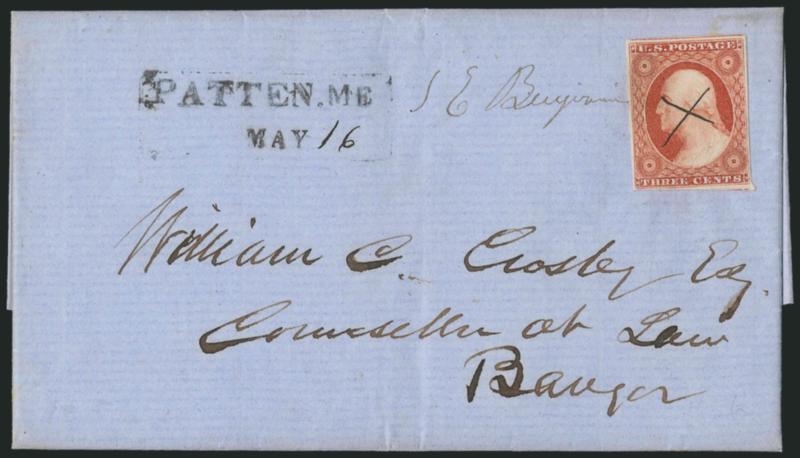 PATTEN.ME
MAY 16
S E Benjamin
U.S. POSTAGE
THREE CENTS
William C. Crosby Esq.
Counseller at Law
Bangor